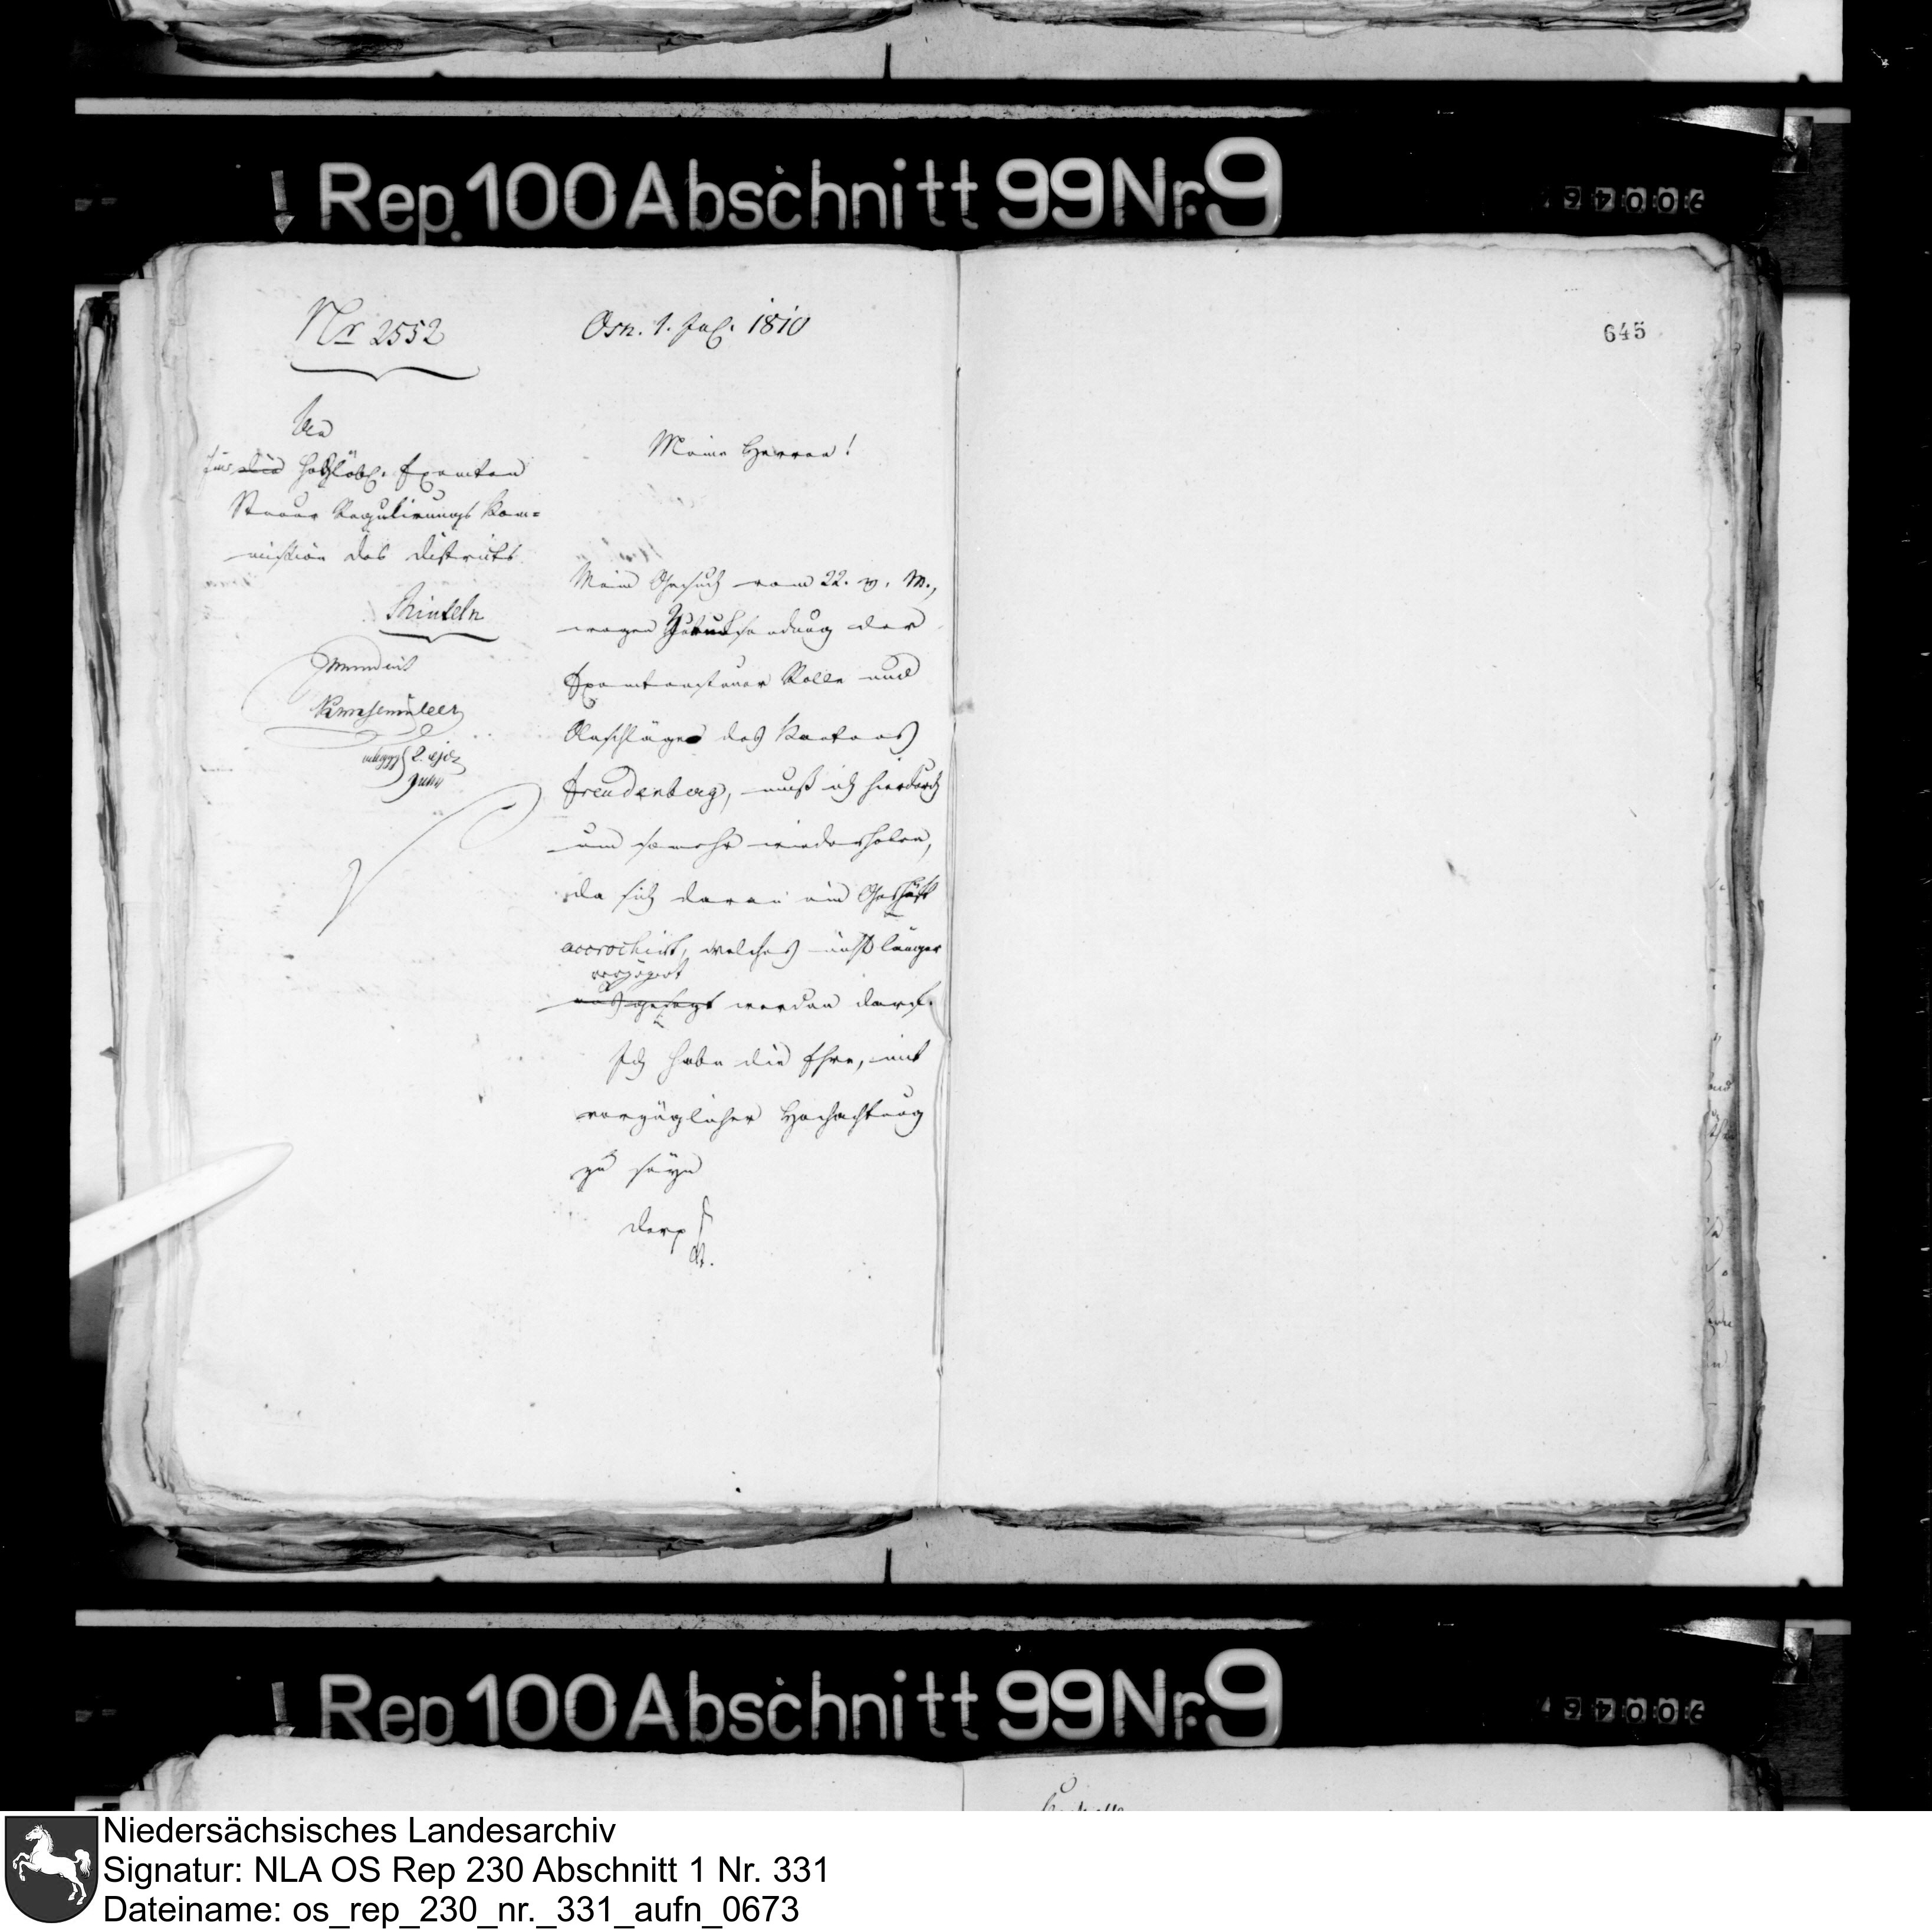 Rep. 100 Abschnitt 99 Nr. 9
Nr 2552
Osn. 1. Jul. 1810
An
hochlöbl. Exemten
Steuer Regulirungs Kom=
mission des Districts
Rinteln
mundirt
2. ejd
Meine Herren!
Mein Gesuch vom 22. v. M.,
wegen Zurücksendung der
Exemtensteuer Rolle und
Anschläge des Kantons
Freudenberg, muß ich hierdurch
um somehr wiederholen,
da sich daran ein Geschäft
accrochirt, welches nicht länger
verzögert
ausgesetzt werden darf.
Ich habe die Ehre, mit
vorzüglicher Hochachtung
zu seyn
645
Rep. 100 Abschnitt 99 Nr. 9
Niedersächsisches Landesarchiv
Signatur: NLA OS Rep 230 Abschnitt 1 Nr. 331
Dateiname: os_rep_230_nr._331_aufn_0673